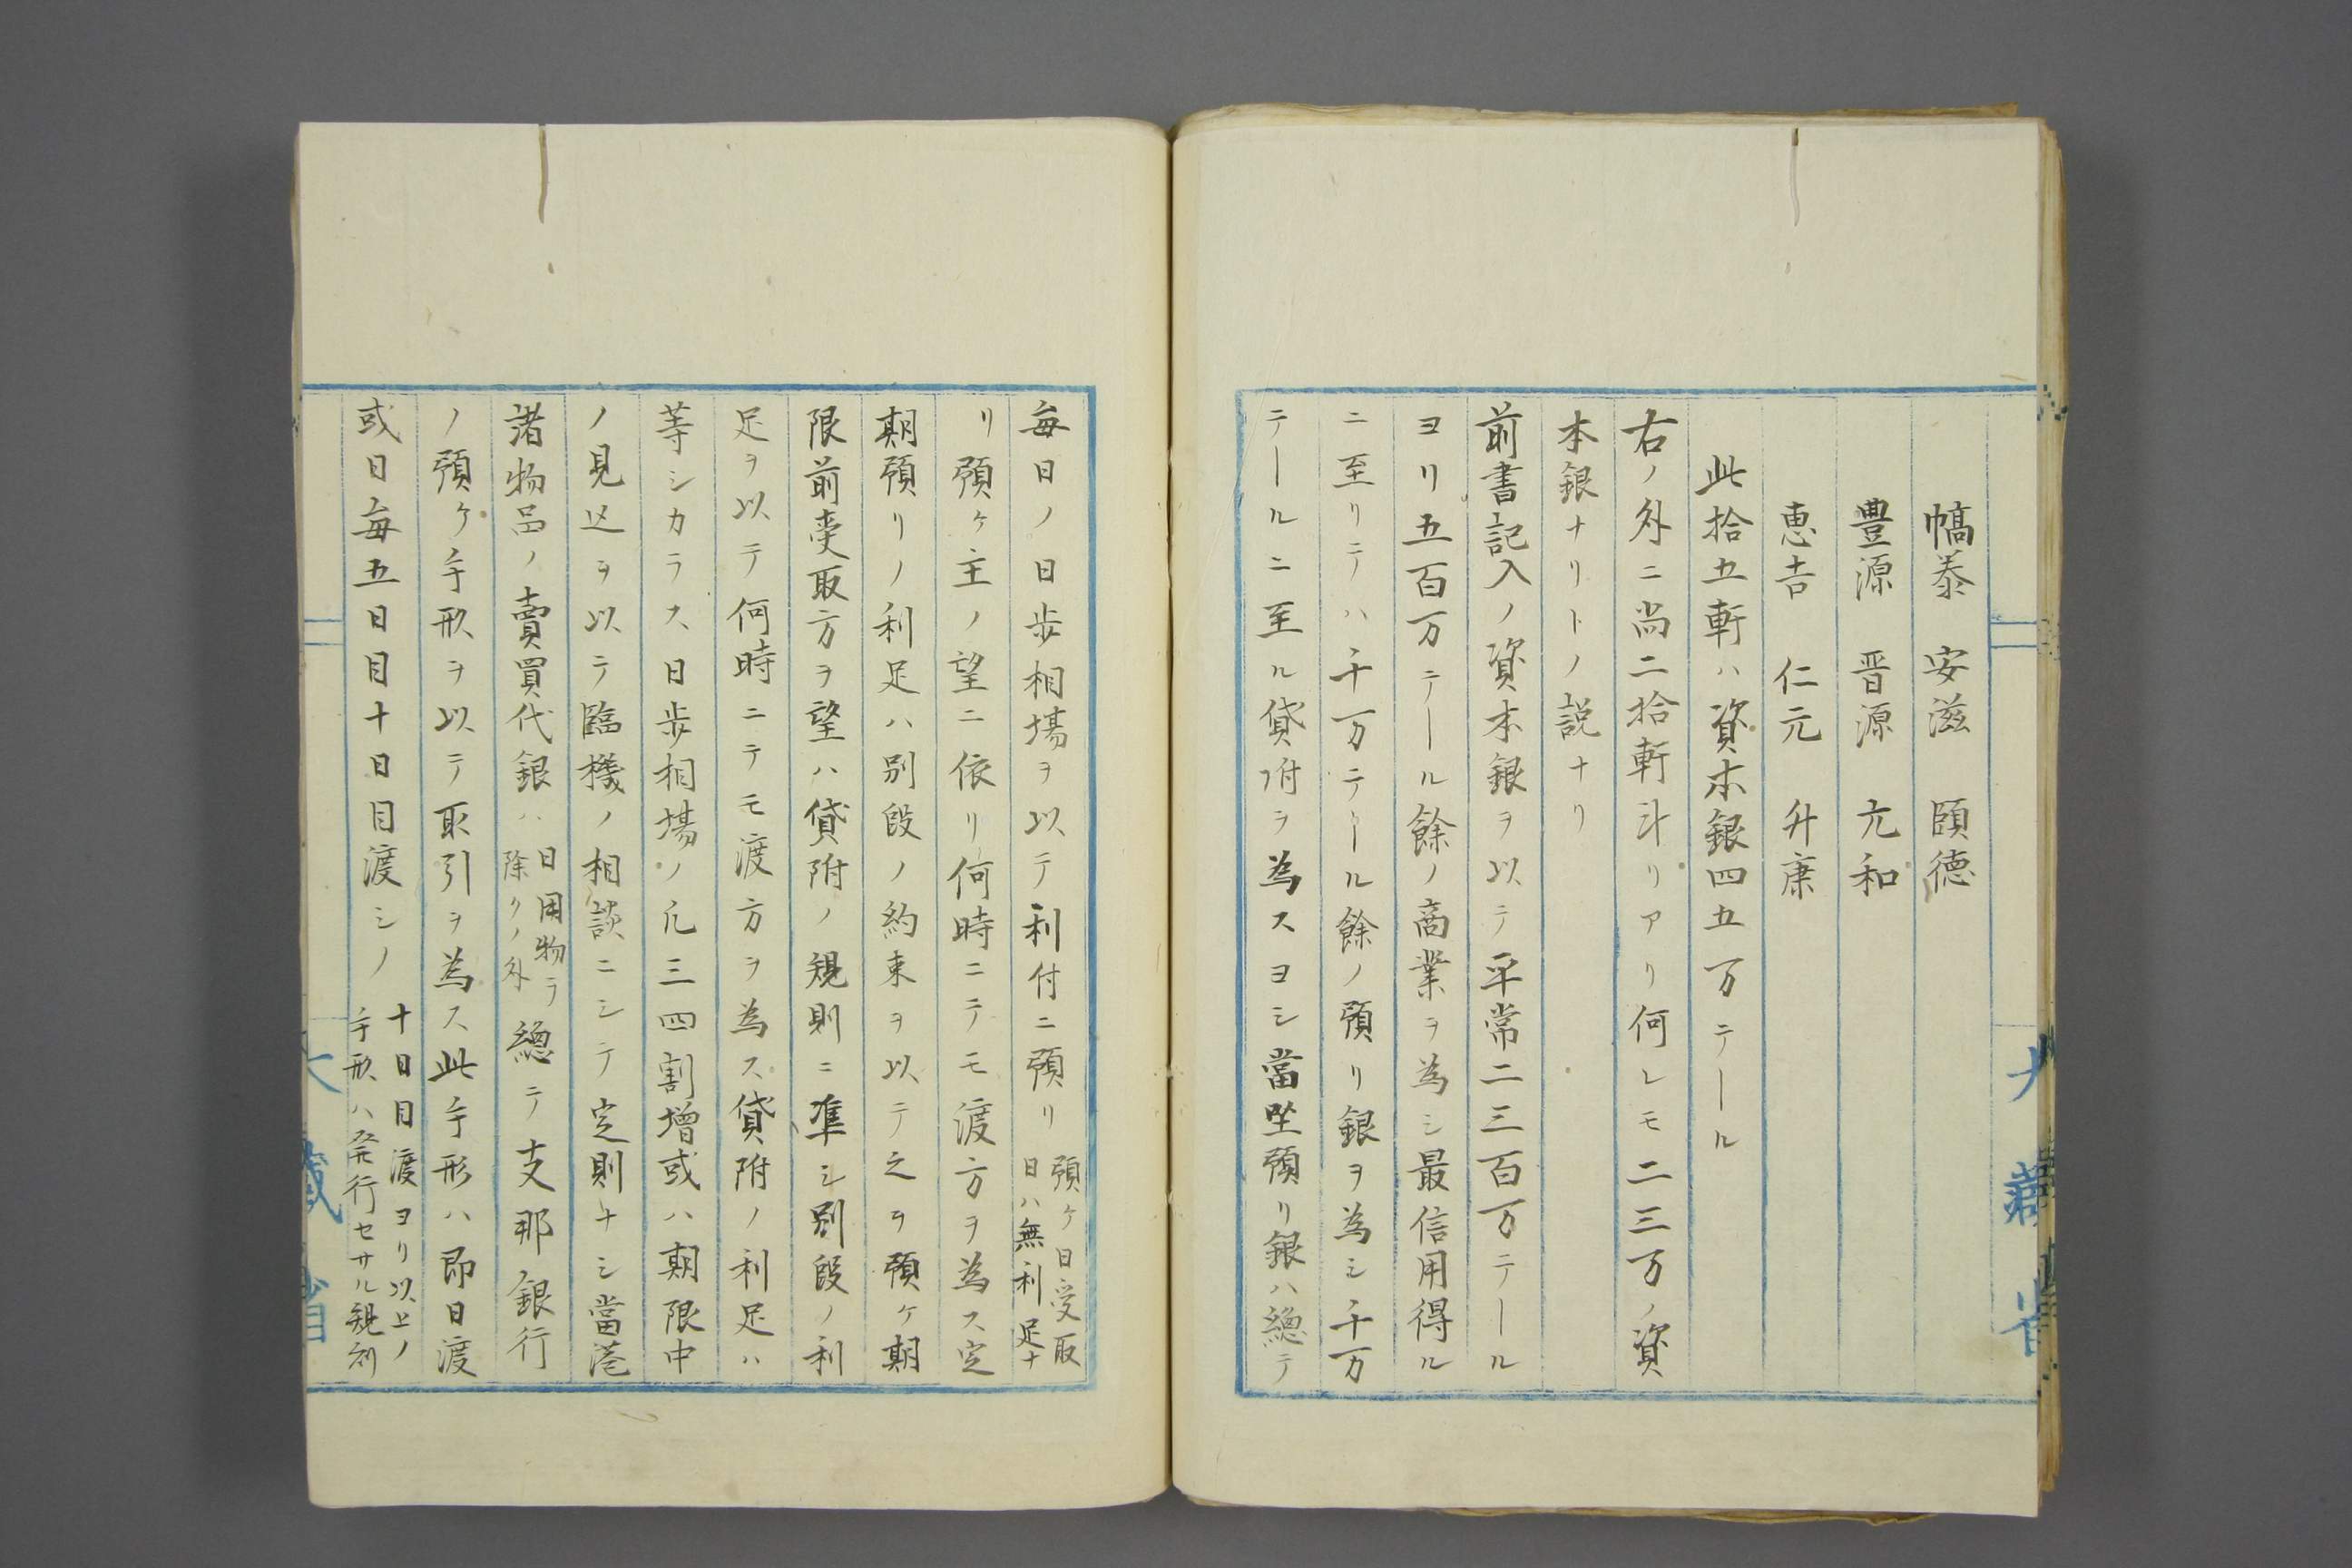 幬泰　安滋　頤德
豊源　晋源　元和
恵吉　仁元　升康
此拾五軒ハ資本銀四五万テール
右ノ外ニ尚二拾軒斗リアリ何レモ二三万ノ資
本銀ナリトノ説ナリ
前書記入ノ資本銀ヲ以テ平常二三百万テール
ヨリ五百万テール餘ノ商業ヲ為シ最信用得ル
ニ至リテハ千万テール餘ノ預リ銀ヲ為シ千万
テールニ至ル貸附ヲ為スヨシ當坐預リ銀ハ總テ
大藏省
毎日ノ日歩相場ヲ以テ利付ニ預リ
預ケ日受取
日ハ無利足ナ
リ預ケ主ノ望ニ依リ何時ニテモ渡方ヲ為ス定
期預リノ利足ハ別段ノ約束ヲ以テ之ヲ預ケ期
限前受取方ヲ望ハ貸附ノ規則ニ準シ別段ノ利
足ヲ以テ何時ニテモ渡方ヲ為ス貸附ノ利足ハ
等シカラス日歩相場ノ凡三四割増或ハ期限中
ノ見込ヲ以テ臨機ノ相談ニシテ定則ナシ當港
諸物品ノ賣買代銀ハ
日用物ヲ
除クノ外
總テ支那銀行
ノ預ケ手形ヲ以テ取引ヲ為ス此手形ハ即日渡
或日毎五日目十日目渡シノ
十日目渡ヨリ以上ノ
手形ハ発行セサル規則
大藏省